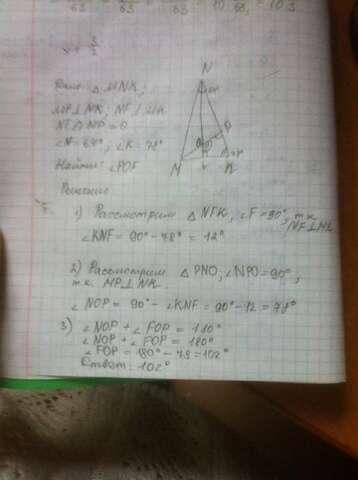 Дано: △ MNK;
MP⊥NK; NF⊥MK
NF∩MP=O
∠N=64°, ∠K=78°
Найти: ∠POF
Решение
N
P
O
M
F
K
1) Рассмотрим △ NFK, ∠F=90°, тк NF⊥MK
∠KNF = 90° - 78° = 12°
2) Рассмотрим △ PNO, ∠NPO=90°,
тк. MP⊥NK.
∠NOP = 90° - ∠KNF = 90° - 12 = 78°
3) ∠NOP + ∠FOP = 180°
∠NOP + ∠FOP = 180°
∠FOP = 180° - 78 = 102°
Ответ: 102°